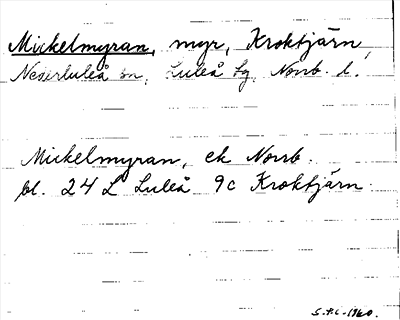 Mickelmyran, myr, Kroktjärn,
Nederluleå sn, Luleå tg, Norrb. l.
Mickelmyran, ek Norrb.
bl. 24 L Luleå 9c Kroktjärn.
1960.